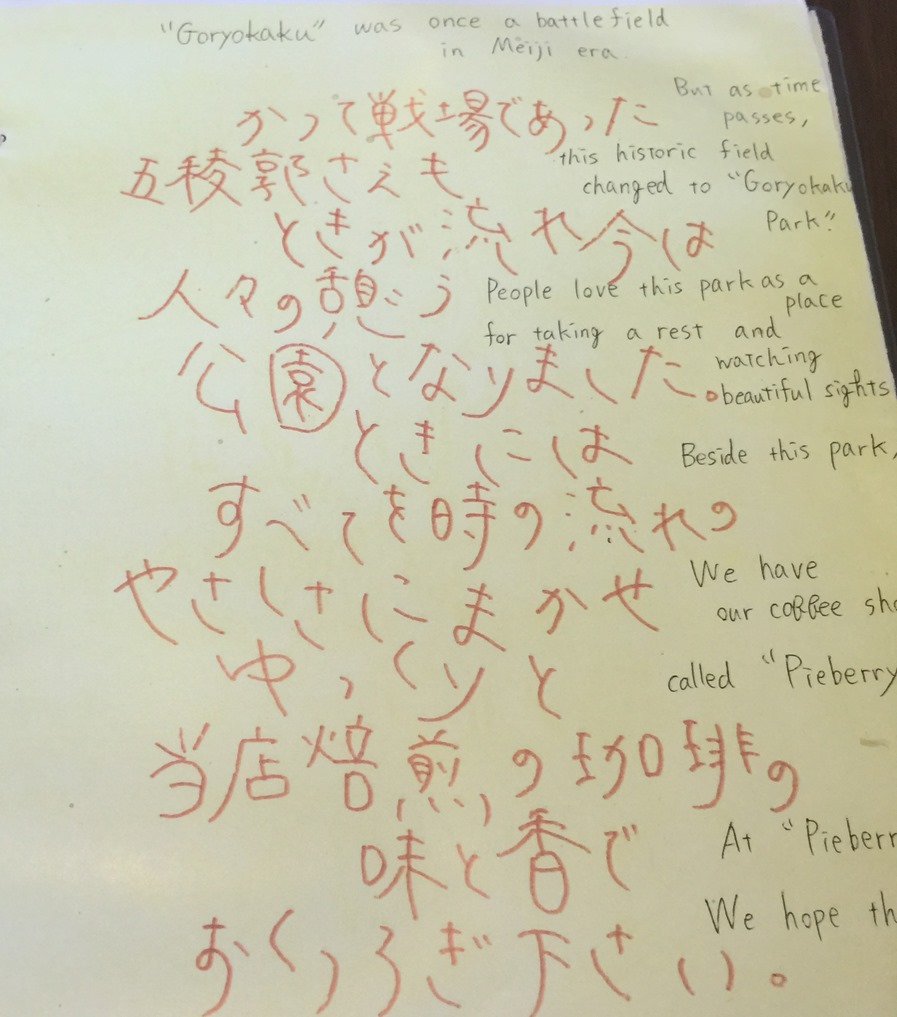 "Goryokaku" was once a battlefield
in Meiji era
かつて戦場であった
But as time
passes,
五稜郭さえも
this historic field
changed to "Goryokaku
Park".
ときが流れ今は
人々の憩う
People love this park as a
place
for taking a rest and
watching
beautiful sights
公園となりました。
ときには
Beside this park,
すべてを時の流れの
やさしさにまかせ
We have
our coffee
ゆっくりと
called "Pieberry
当店焙煎の珈琲の
味と香で
At
We hope
おくつろぎ下さい。